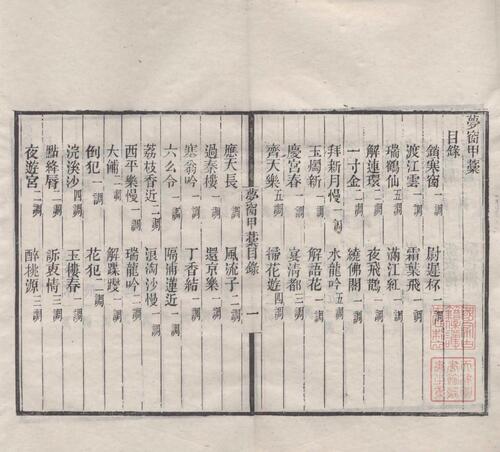 夢窗甲藁
目錄
鎖寒窗一調 尉遲杯一調
渡江雲一調 霜葉飛一調
瑞鶴仙五調 滿江紅二調
解連環二調 夜飛鵲一調
一寸金二調 繞佛閣一調
拜新月慢一調 水龍吟五調
玉燭新一調 解語花一調
慶宮春一調 宴清都二調
齊天樂五調 掃花遊四調
夢窗甲藁目錄 一
應天長一調 風流子二調
過秦樓一調 還京樂一調
塞翁吟一調 丁香結一調
六么令一調 隔浦蓮近一調
荔枝香近二調 浪淘沙慢一調
西平樂慢一調 瑞龍吟二調
大酺一調 解蹀躞一調
倒犯一調 花犯二調
浣溪沙四調 玉樓春一調
點絳唇二調 訴衷情三調
夜遊宮二調 醉桃源三調